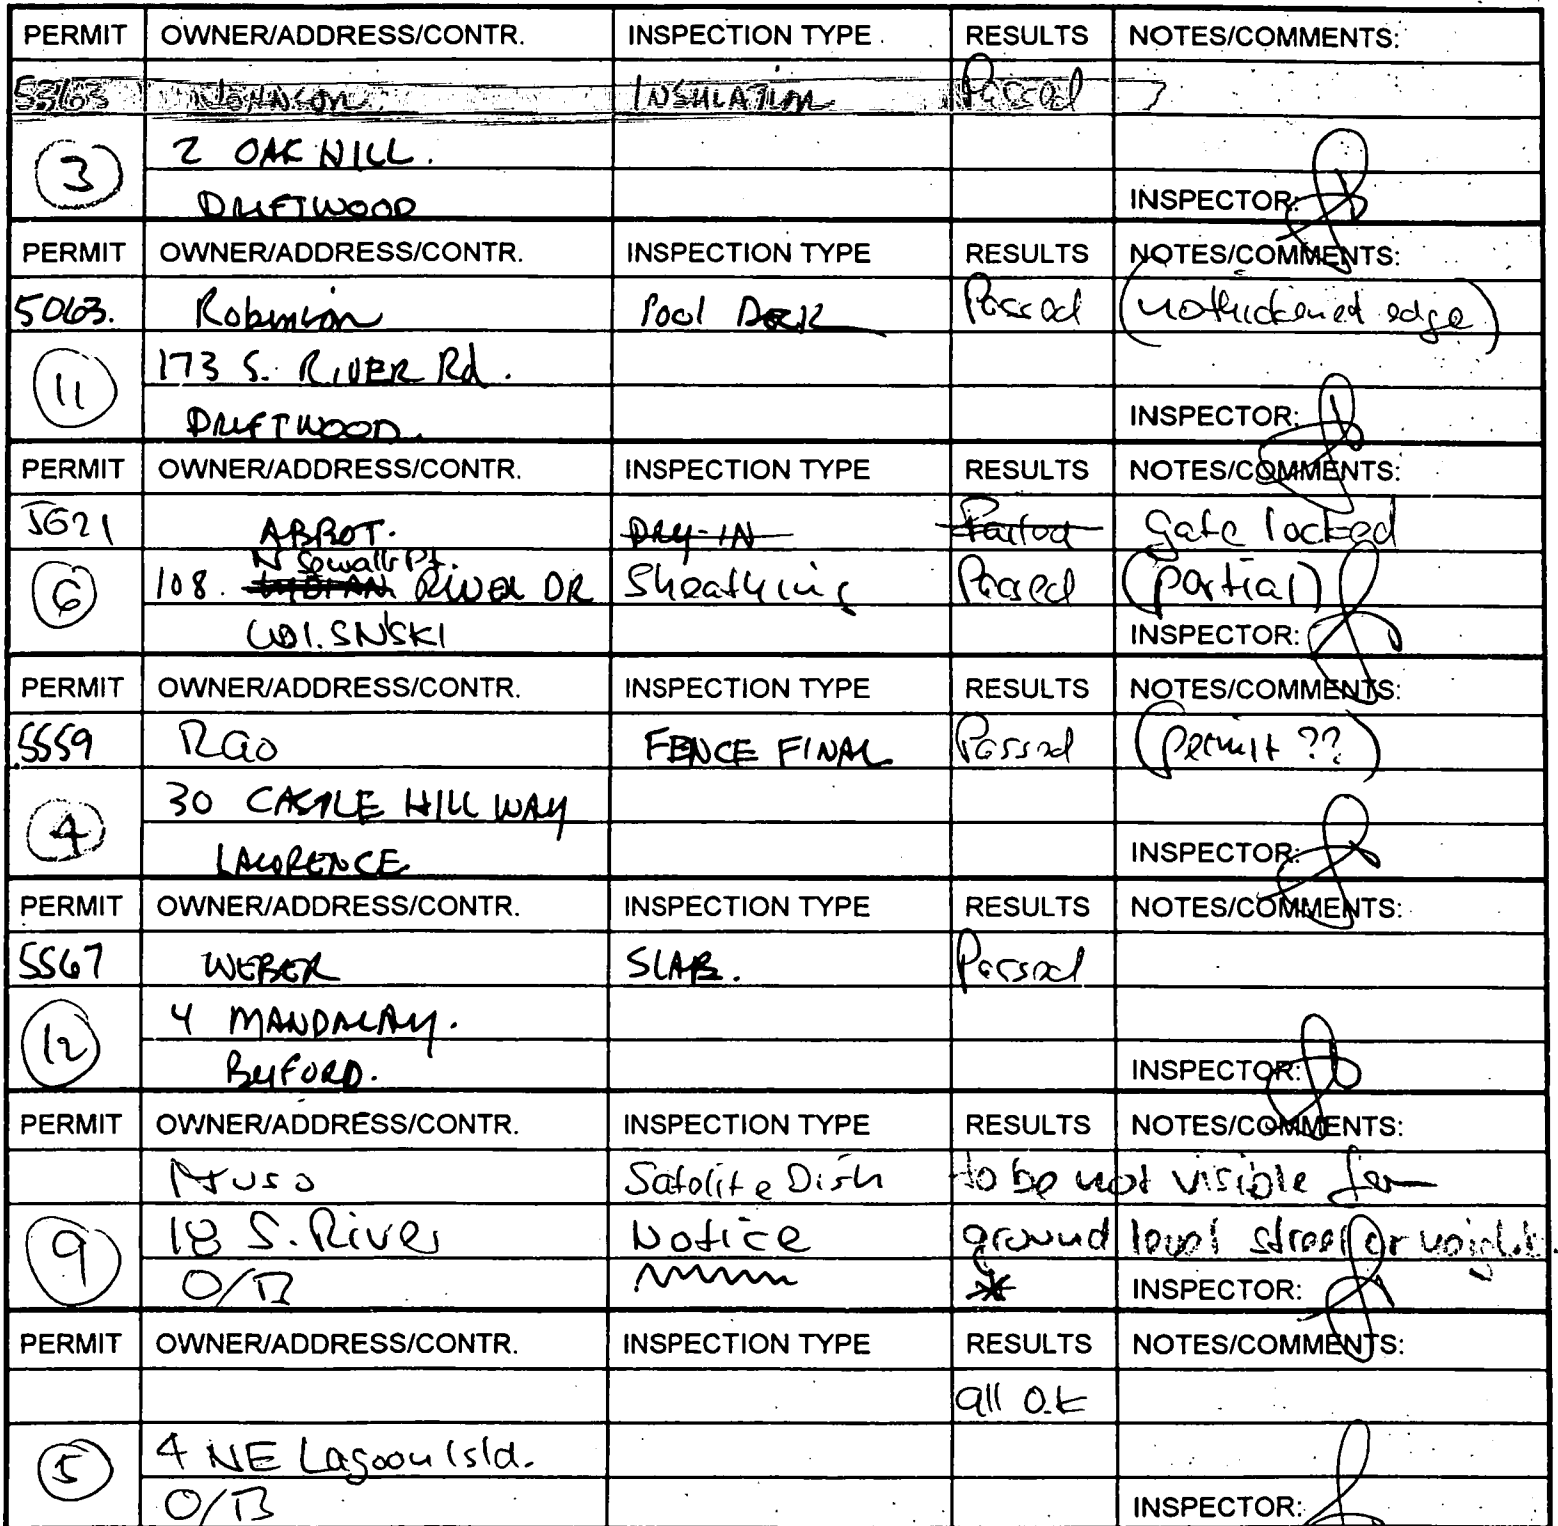 PERMIT OWNER/ADDRESS/CONTR. INSPECTION TYPE. RESULTS NOTES/COMMENTS:
5363 JOHNSON. INSULATION Passed
3 2 OAK HILL.
DRIFTWOOD INSPECTOR:
PERMIT OWNER/ADDRESS/CONTR. INSPECTION TYPE RESULTS NOTES/COMMENTS:
5063. Robinson Pool Deck Passed (no thickened edge)
11 173 S. RIVER Rd.
DRIFTWOOD. INSPECTOR:
PERMIT OWNER/ADDRESS/CONTR. INSPECTION TYPE RESULTS NOTES/COMMENTS:
5621 ABBOT. DRY-IN Failed gate locked
N Sewalls Pt.
6 108. INDIAN RIVER DR Sheathing Passed (partial)
INSPECTOR:
PERMIT OWNER/ADDRESS/CONTR. INSPECTION TYPE RESULTS NOTES/COMMENTS:
5559 Rao FENCE FINAL Passed (permit ??)
4 30 CASTLE HILL WAY
LAWRENCE INSPECTOR:
PERMIT OWNER/ADDRESS/CONTR. INSPECTION TYPE RESULTS NOTES/COMMENTS:
5567 WEBER SLAB. Passed
12 4 MANDALAY.
BUFORD. INSPECTOR:
PERMIT OWNER/ADDRESS/CONTR. INSPECTION TYPE RESULTS NOTES/COMMENTS:
Satolite Dish to be not visible from
9 18 S. River Notice ground level street or neighb.
O/B * INSPECTOR:
PERMIT OWNER/ADDRESS/CONTR. INSPECTION TYPE RESULTS NOTES/COMMENTS:
all O.K
5 4 NE Lagoon Isld.
O/B INSPECTOR: